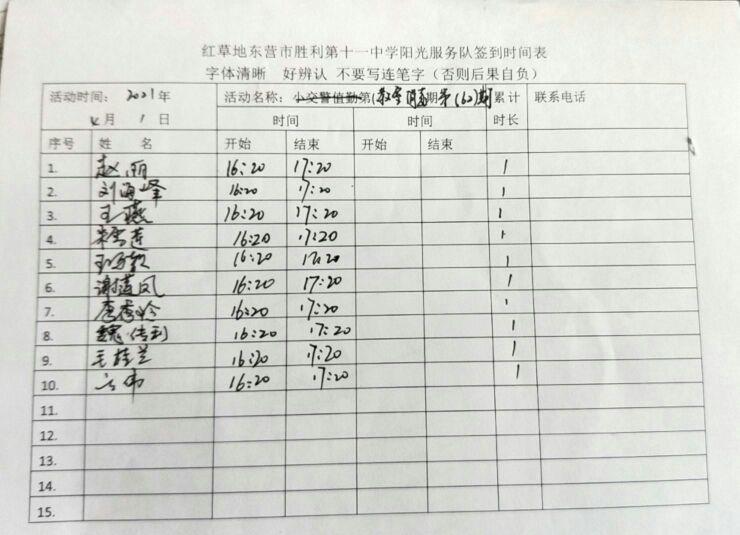 红草地东营市胜利第十一中学阳光服务队签到时间表
字体清晰 好辨认 不要写连笔字（否则后果自负）
活动时间： 2021年 活动名称： 小交警值勤第( 期第(162)期 累计 联系电话
4月 1日 时间 时间 时长
序号 姓 名 开始 结束 开始 结束
1. 赵丽 16:20 17:20 1
2. 刘海峰 16:20 17:20 1
3. 王燕 16:20 17:20 1
4. 朱雪莲 16:20 17:20 1
5. 16:20 17:20 1
6. 谢道凤 16:20 17:20 1
7. 李秀玲 16:20 17:20 1
8. 魏传利 16:20 17:20 1
9. 王桂兰 16:20 17:20 1
10. 16:20 17:20 1
11.
12.
13.
14.
15.